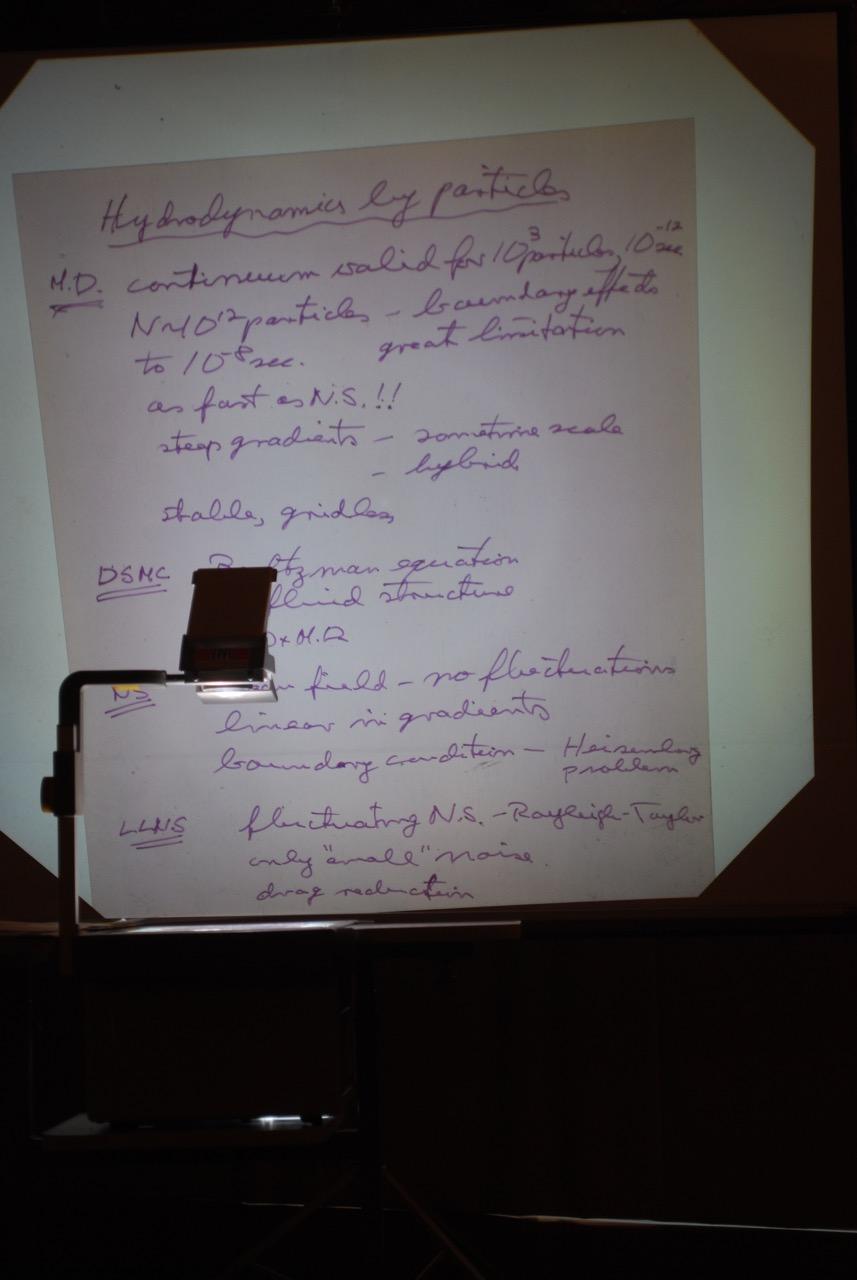 Hydrodynamics by particles
M.D. continuum valid for 10³ particles, 10⁻¹² sec
N~10¹² particles – boundary effects
to 10⁻⁸ sec. great limitation
as fast as N.S.!!
steep gradients – some time scale
– hybrid
stable, gridless
DSMC equation
fluid structure
x M.D.
NS field – no fluctuations
linear in gradients
boundary condition – Heisenberg
problem
LLNS fluctuating N.S. – Rayleigh-Taylor
only "small" noise
drag reduction